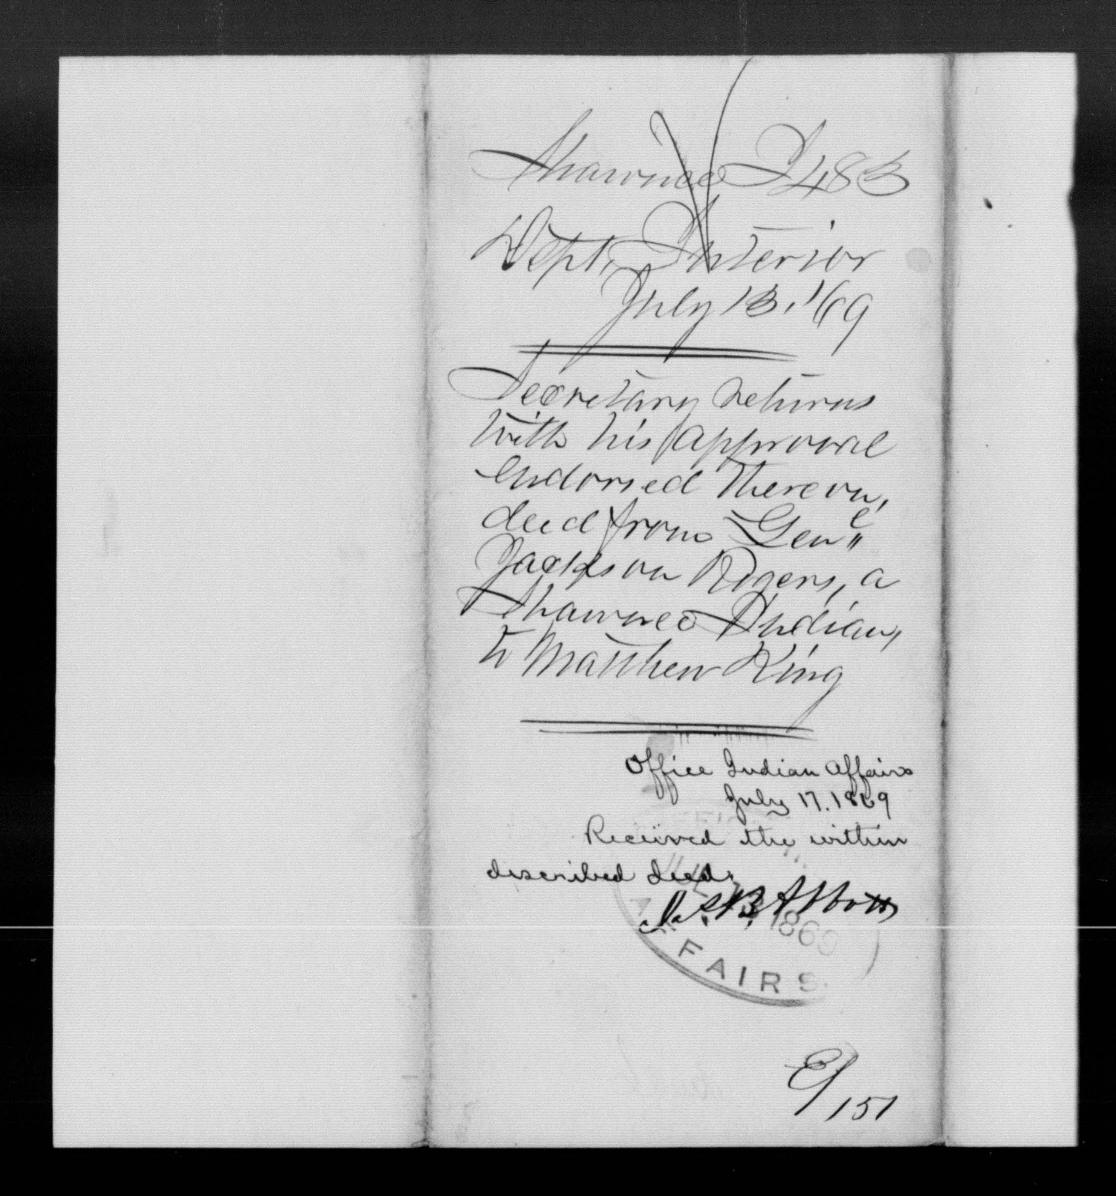 Shawnee I 483
Dept. Interior
July 13. '69
Secretary returns
with his approval
endorsed thereon,
deed from Genl
Jackson Rogers, a
Shawnee Indian,
to Matthew King
Office Indian Affairs
July 17. 1869
Received the within
described deed.
Abbott
JUL 1869
AFFAIRS.
E/151